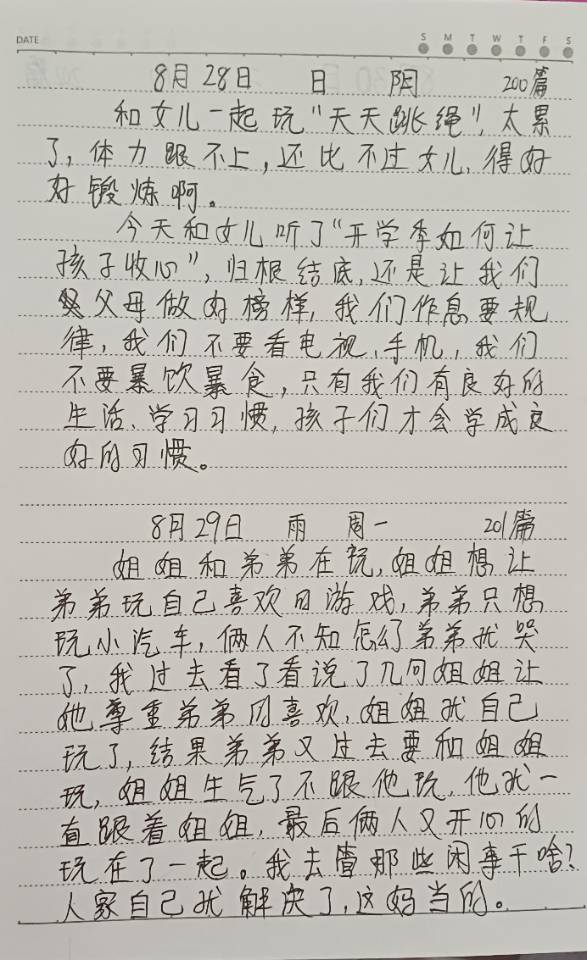 DATE
S M T W T F S
8月28日 日 阴 200篇
和女儿一起玩“天天跳绳”,太累
了,体力跟不上,还比不过女儿,得好
好锻炼啊。
今天和女儿听了“开学季如何让
孩子收心”,归根结底,还是让我们
父母做好榜样,我们作息要规
律,我们不要看电视、手机,我们
不要暴饮暴食,只有我们有良好的
生活、学习习惯,孩子们才会学成良
好的习惯。
8月29日 雨 周一 201篇
姐姐和弟弟在玩,姐姐想让
弟弟玩自己喜欢的游戏,弟弟只想
玩小汽车,俩人不知怎么了弟弟就哭
了,我过去看了看说了几句姐姐让
她尊重弟弟的喜欢,姐姐就自己
玩了,结果弟弟又过去要和姐姐
玩,姐姐生气了不跟他玩,他就一
直跟着姐姐,最后俩人又开心的
玩在了一起。我去管那些闲事干啥?
人家自己就解决了,这妈当的。